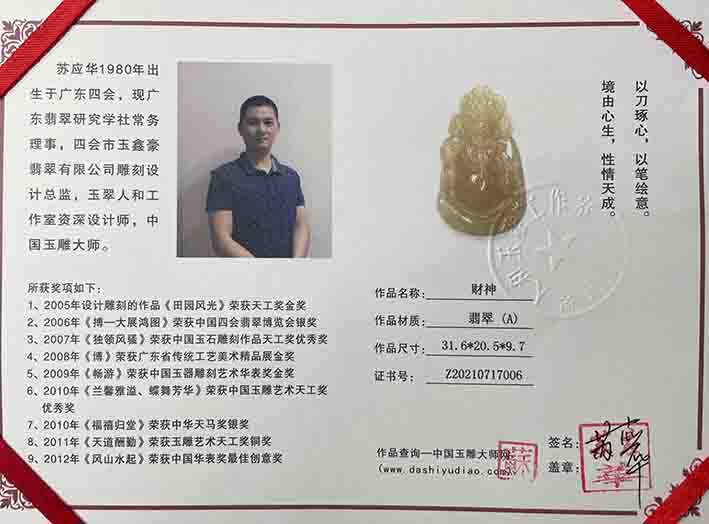 苏应华1980年出
生于广东四会，现广
东翡翠研究学社常务
理事，四会市玉鑫豪
翡翠有限公司雕刻设
计总监，玉翠人和工
作室资深设计师，中
国玉雕大师。
以刀琢心，以笔绘意。
境由心生，性情天成。
所获奖项如下：
1、2005年设计雕刻的作品《田园风光》荣获天工奖金奖
2、2006年《搏一大展鸿图》荣获中国四会翡翠博览会银奖
3、2007年《独领风骚》荣获中国玉石雕刻作品天工奖优秀奖
4、2008年《博》荣获广东省传统工艺美术精品展金奖
5、2009年《畅游》荣获中国玉器雕刻艺术华表奖金奖
6、2010年《兰馨雅溢、蝶舞芳华》荣获中国玉雕艺术天工奖
优秀奖
7、2010年《福禧归堂》荣获中华天马奖银奖
8、2011年《天道酬勤》荣获玉雕艺术天工奖铜奖
9、2012年《风山水起》荣获中国华表奖最佳创意奖
作品名称： 财神
作品材质： 翡翠（A）
作品尺寸： 31.6*20.5*9.7
证书号： Z20210717006
作品查询一中国玉雕大师网
(www.dashiyudiao.com)
签名：
盖章：